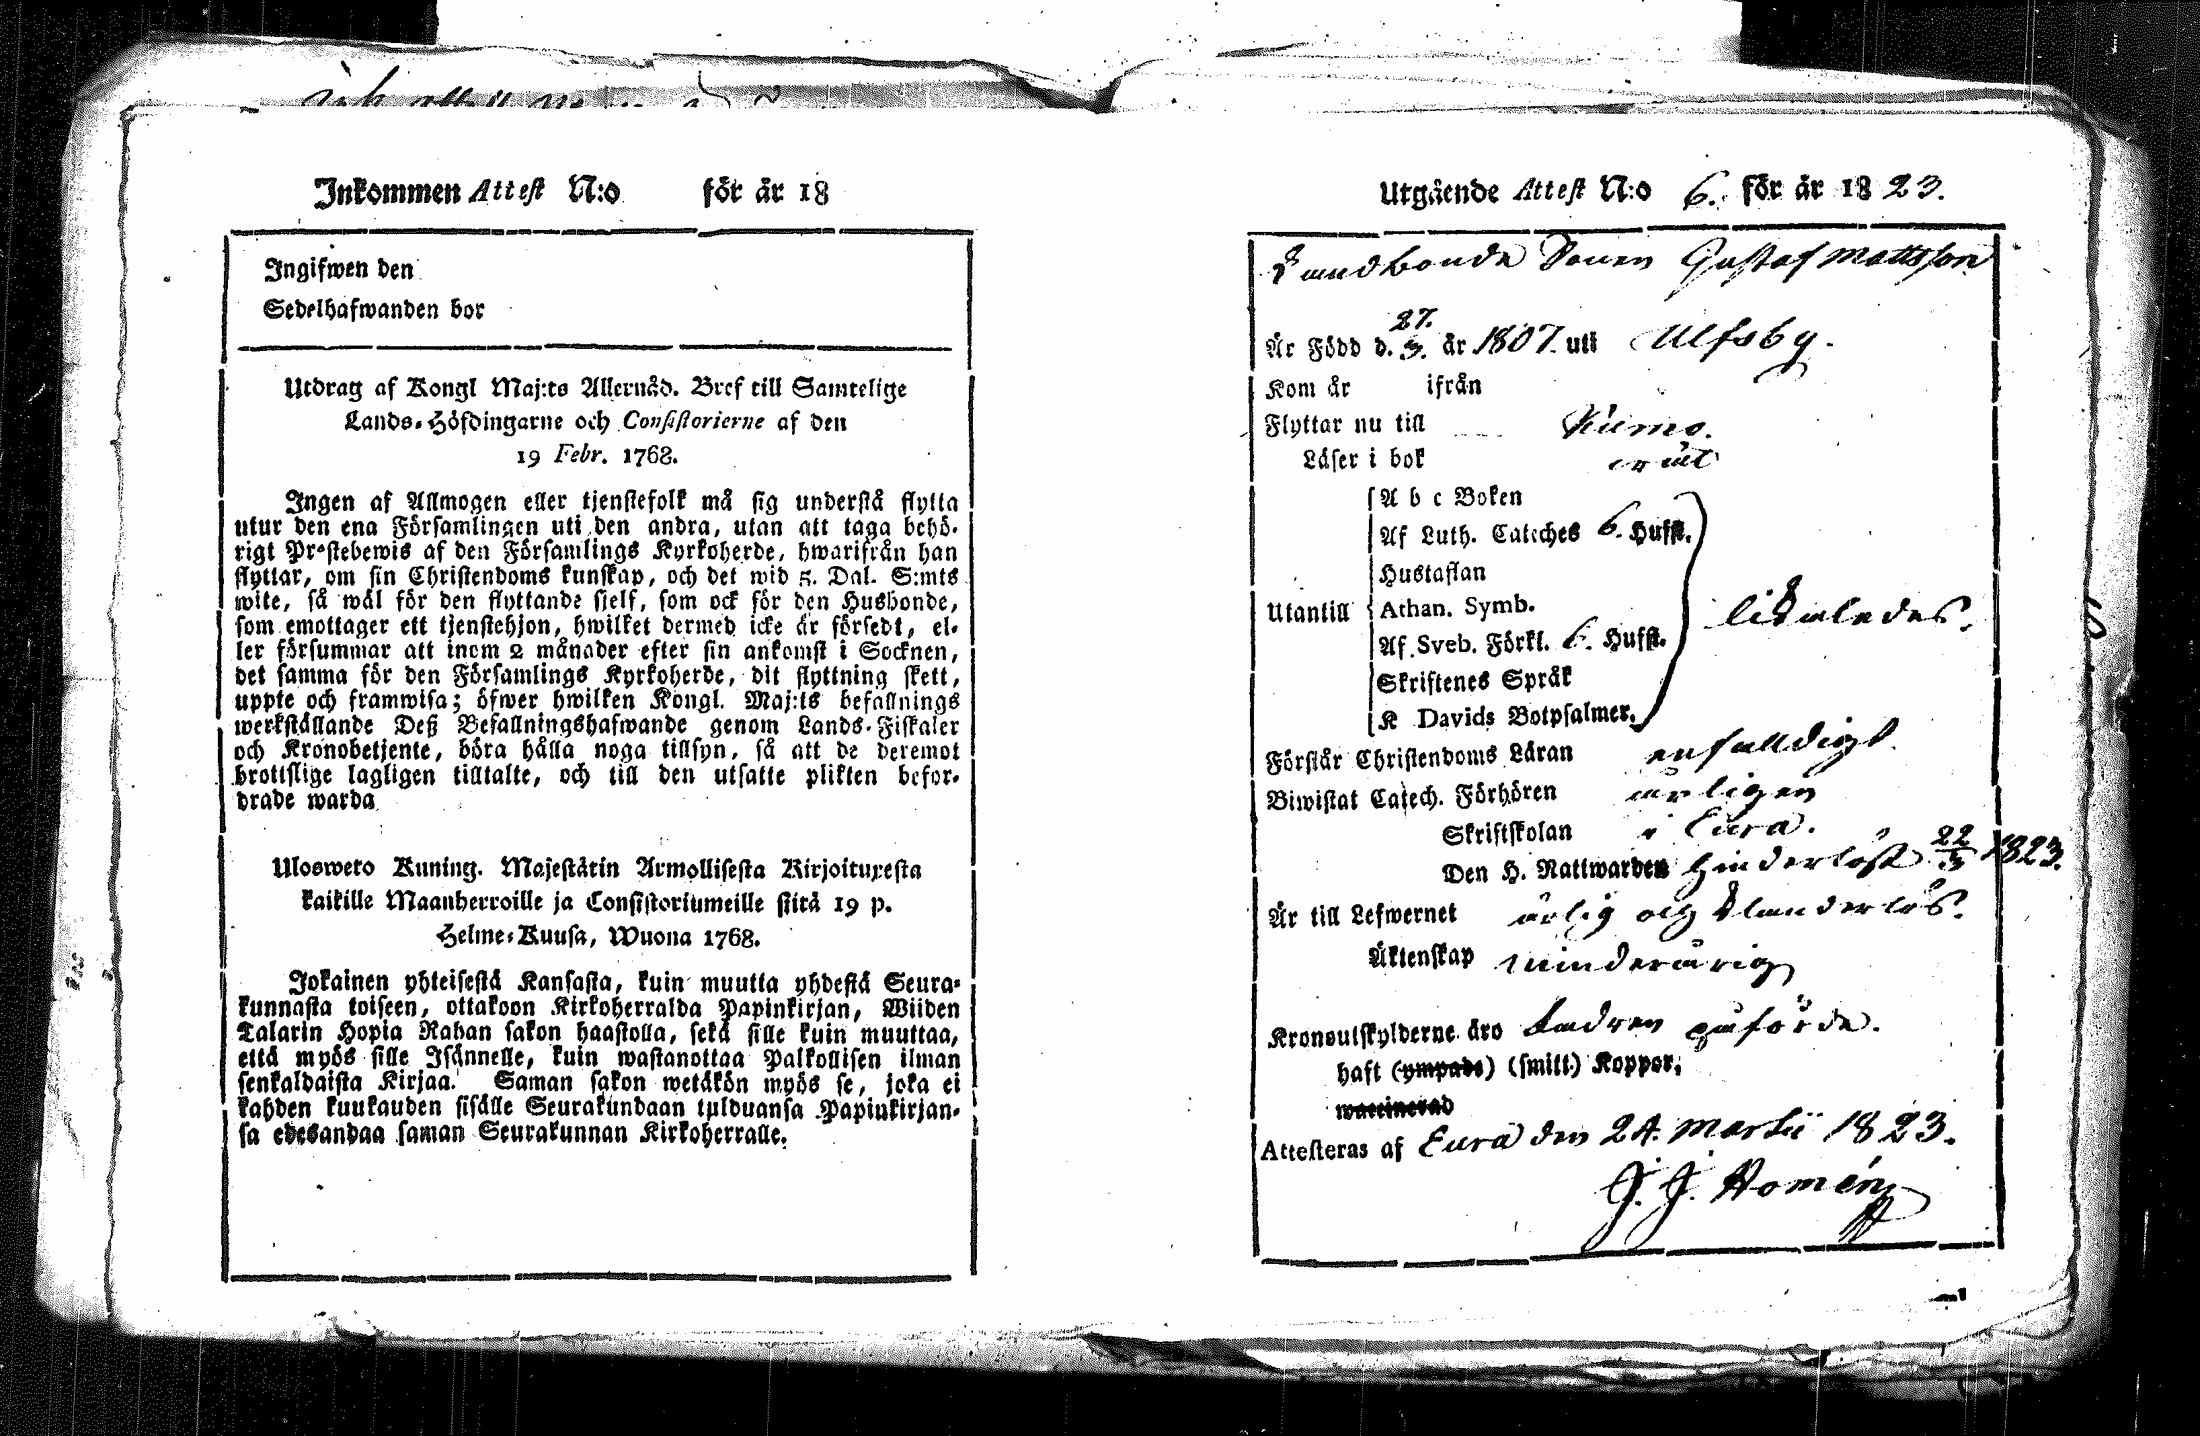 Inkommen Attest N:o för år 18
Ingifwen den
Sedelhafwanden bor
Utdrag af Kongl Maj:ts Allernåd. Bref till Samtelige
Lands-Höfdingarne och Consistorierne af den
19 Febr. 1768.
Ingen af Allmogen eller tjenstefolk må sig understå flytta
utur den ena Församlingen uti den andra, utan att taga behö-
rigt Prestebewis af den Församlings Kyrkoherde, hwarifrån han
flyttar, om sin Christendoms kunskap, och det wid 5. Dal. S:mts
wite, så wäl för den flyttande sjelf, som ock för den Husbonde,
som emottager ett tjenstehjon, hwilket dermed icke är försedt, el-
ler försummar att inom 2 månader efter sin ankomst i Socknen,
det samma för den Församlings Kyrkoherde, dit flyttning skett,
uppte och framwisa; öfwer hwilken Kongl. Maj:ts befallnings
werkställande Deß Befallningshafwande genom Lands-Fiskaler
och Kronobetjente, böra hålla noga tillsyn, så att de deremot
brottslige lagligen tilltalte, och till den utsatte plikten befor-
drade warda
Ulosweto Kuning. Majestätin Armollisesta Kirjoituxesta
kaikille Maanherroille ja Consistoriumeille siitä 19 p.
Helme-Kuusa, Wuona 1768.
Jokainen yhteisestä Kansasta, kuin muutta yhdestä Seura-
kunnasta toiseen, ottakoon Kirkoherralda Papinkirjan, Wiiden
Talarin Hopia Rahan sakon haastolla, sekä sille kuin muuttaa,
että myös sille Isännelle, kuin wastanottaa Palkollisen ilman
senkaldaista Kirjaa. Saman sakon wetäkön myös se, joka ei
kahden kuukauden sisälle Seurakundaan tulduansa Papinkirjan-
sa edesandaa saman Seurakunnan Kirkoherralle.
Utgående Attest N:o 6. för år 1823.
Landbonde Sonen Gustaf Mattsson
Är Född d. 27. 3. år 1807. uti Ulfsby.
Kom år ifrån
Flyttar nu till Kumo.
Läser i bok
A b c Boken
Af Luth. Cateches 6. Hufst.
Hustaflan
Utantill Athan. Symb. likaledes.
Af Sveb. Förkl. 6. Hufst.
Skriftenes Språk
K Davids Botpsalmer.
Förstår Christendoms Läran enfalldigt
Biwistat Catech. Förhören årligen
Skriftskolan i Eura.
Den H. Nattwarden hinderlöst 22/3 1823.
Är till Lefwernet ärlig och klanderlös.
Äktenskap minderårig
Kronoutskylderne äro Fadren påförde.
haft (ympade) (smitt) Koppor,
waccinerad
Attesteras af Eura den 24. Martii 1823.
J. J. Homén